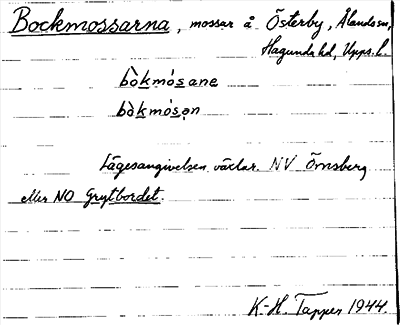 Bockmossarna, mossar å Österby, Ålands sn,
Hagunda hd, Upps. l.
bòkmósane
bòkmósan
Lägesangivelsen växlar. NV Örnsberg
eller NO Grytbordet.
K.-H. Tapper 1944.